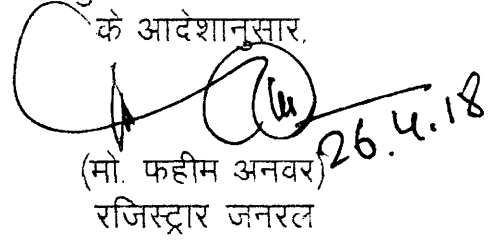 के आदेशानुसार,
26.4.18
(मो. फहीम अनवर)
रजिस्ट्रार जनरल